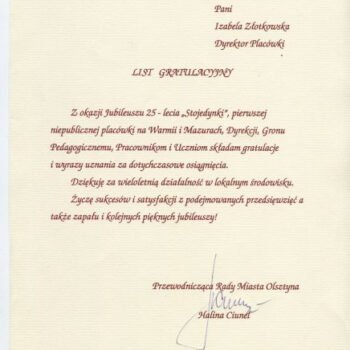 Pani
Izabela Złotkowska
Dyrektor Placówki
LIST GRATULACYJNY
Z okazji Jubileuszu 25 - lecia „Stojedynki", pierwszej
niepublicznej placówki na Warmii i Mazurach, Dyrekcji, Gronu
Pedagogicznemu, Pracownikom i Uczniom składam gratulacje
i wyrazy uznania za dotychczasowe osiągnięcia.
Dziękuję za wieloletnią działalność w lokalnym środowisku.
Życzę sukcesów i satysfakcji z podejmowanych przedsięwzięć a
także zapału i kolejnych pięknych jubileuszy!
Przewodnicząca Rady Miasta Olsztyna
Halina Ciunel